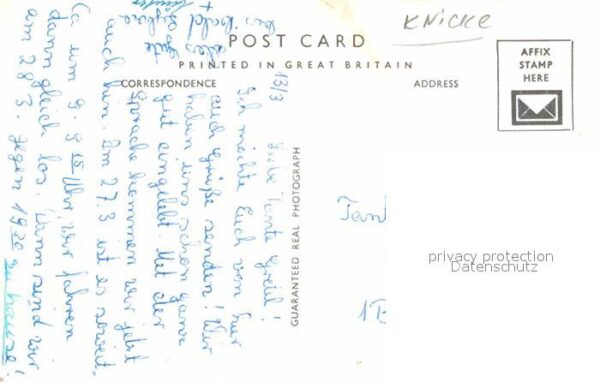 KNICKE
POST CARD
PRINTED IN GREAT BRITAIN
CORRESPONDENCE
ADDRESS
AFFIX
STAMP
HERE
GUARANTEED REAL PHOTOGRAPH
13/3
Liebe Tante Gretl!
Ich möchte Euch von hier
auch Grüße senden! Wir
haben uns schon ganz
gut eingelebt. Mit der
Sprache kommen wir jetzt
auch hin. Am 27.3 ist es soweit,
Ca um 9.15 Uhr, wir fahren
dann gleich los. Dann sind wir
am 28.3. gegen 19.30 zu hause!
Bis bald
+ alles
Gute
Tant
privacy protection
Datenschutz